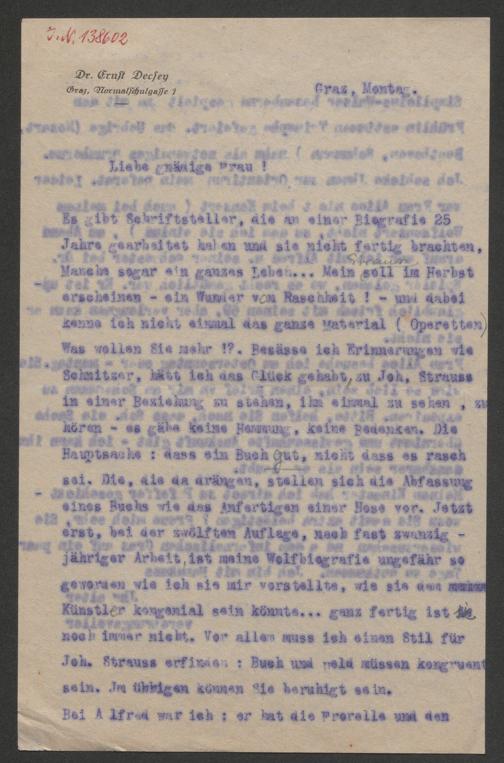 I.N. 138602
Dr. Ernst Decsey
Graz, Normalschulgasse 1
Graz, Montag.
Liebe gnädige Frau !
Es gibt Schriftsteller, die an einer Biografie 25
Jahre gearbeitet haben und sie nicht fertig brachten,
Manche sogar ein ganzes Leben... Mein Strauss soll im Herbst
erscheinen - ein Wunder von Raschheit ! - und dabei
kenne ich nicht einmal das ganze Material ( Operetten)
Was wollen Sie mehr !?. Besässe ich Erinnerungen wie
Schnitzer, hätt ich das Glück gehabt, zu Joh. Strauss
in einer Beziehung zu stehen, ihn einmal zu sehen , zu
hören - es gäbe keine Hemmung, keine Bedenken. Die
Hauptsache : dass ein Buch gut, nicht dass es rasch
sei. Die, die da drängen, stellen sich die Abfassung
eines Buchs wie das Anfertigen einer Hose vor. Jetzt
erst, bei der zwölften Auflage, nach fast zwanzig -
jähriger Arbeit, ist meine Wolfbiografie ungefähr so
geworden wie ich sie mir vorstellte, wie sie dem
Künstler kongenial sein könnte... ganz fertig ist sie
noch immer nicht. Vor allem muss ich einen Stil für
Joh. Strauss erfinden : Buch und Held müssen kongruent
sein. Im übrigen können Sie beruhigt sein.
Bei Alfred war ich : er hat die Forelle und den